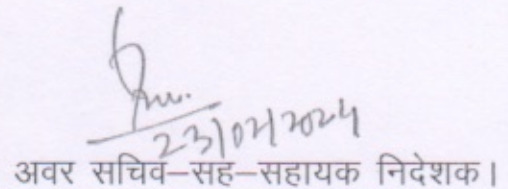 23/02/2024
अवर सचिव–सह–सहायक निदेशक।